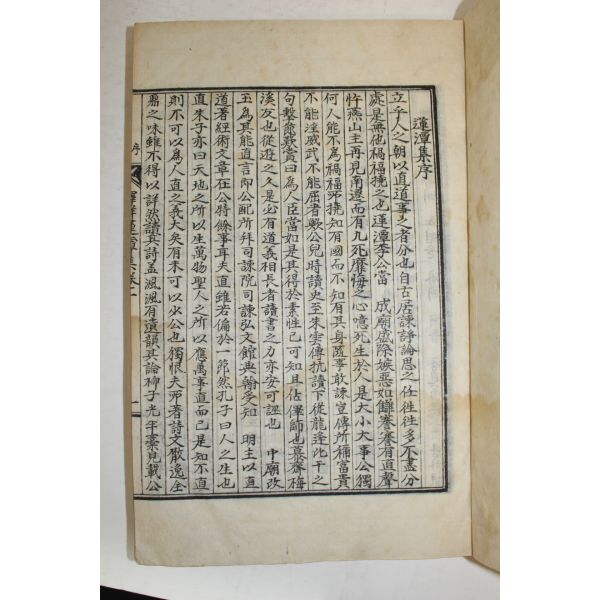 蓮潭集序
立乎人之朝以直道事之者分也自古居諫諍論思之任往往多不盡分
處是無他禍福撓之也蓮潭李公當 成廟盛際嫉惡如讎謇謇有直聲
忤燕山主再見甯遷而有九死靡悔之心噫死生於人是大小大事公獨
何人能不爲禍福所撓知有國而不知有其身隨事敢諫豈傳所稱富貴
不能淫威武不能屈者歟公兒時讀史至朱雲傳抗讀下從龍逄比干之
句擊節歎賞曰爲人臣當如是其得於素性已可知且佔俾師也慕齋梅
溪友也從遊之久是必有道義相長者讀書之力亦安可誣也 中廟改
玉爲其能直言即公配所拜司諫院司諫弘文館典翰受知 明主以直
道著經術文章在公特餘事耳夫直雖若偏於一節然孔子曰人之生也
直朱子亦曰天地之所以生萬物聖人之所以應萬事直而已是知不直
則不可以爲人直之義大矣有未可以少公也獨恨夫所著詩文散逸全
鼎之味雖不得以詳然讀其詩蓋渢渢有遺韻其論柳子光年藁見載公
序